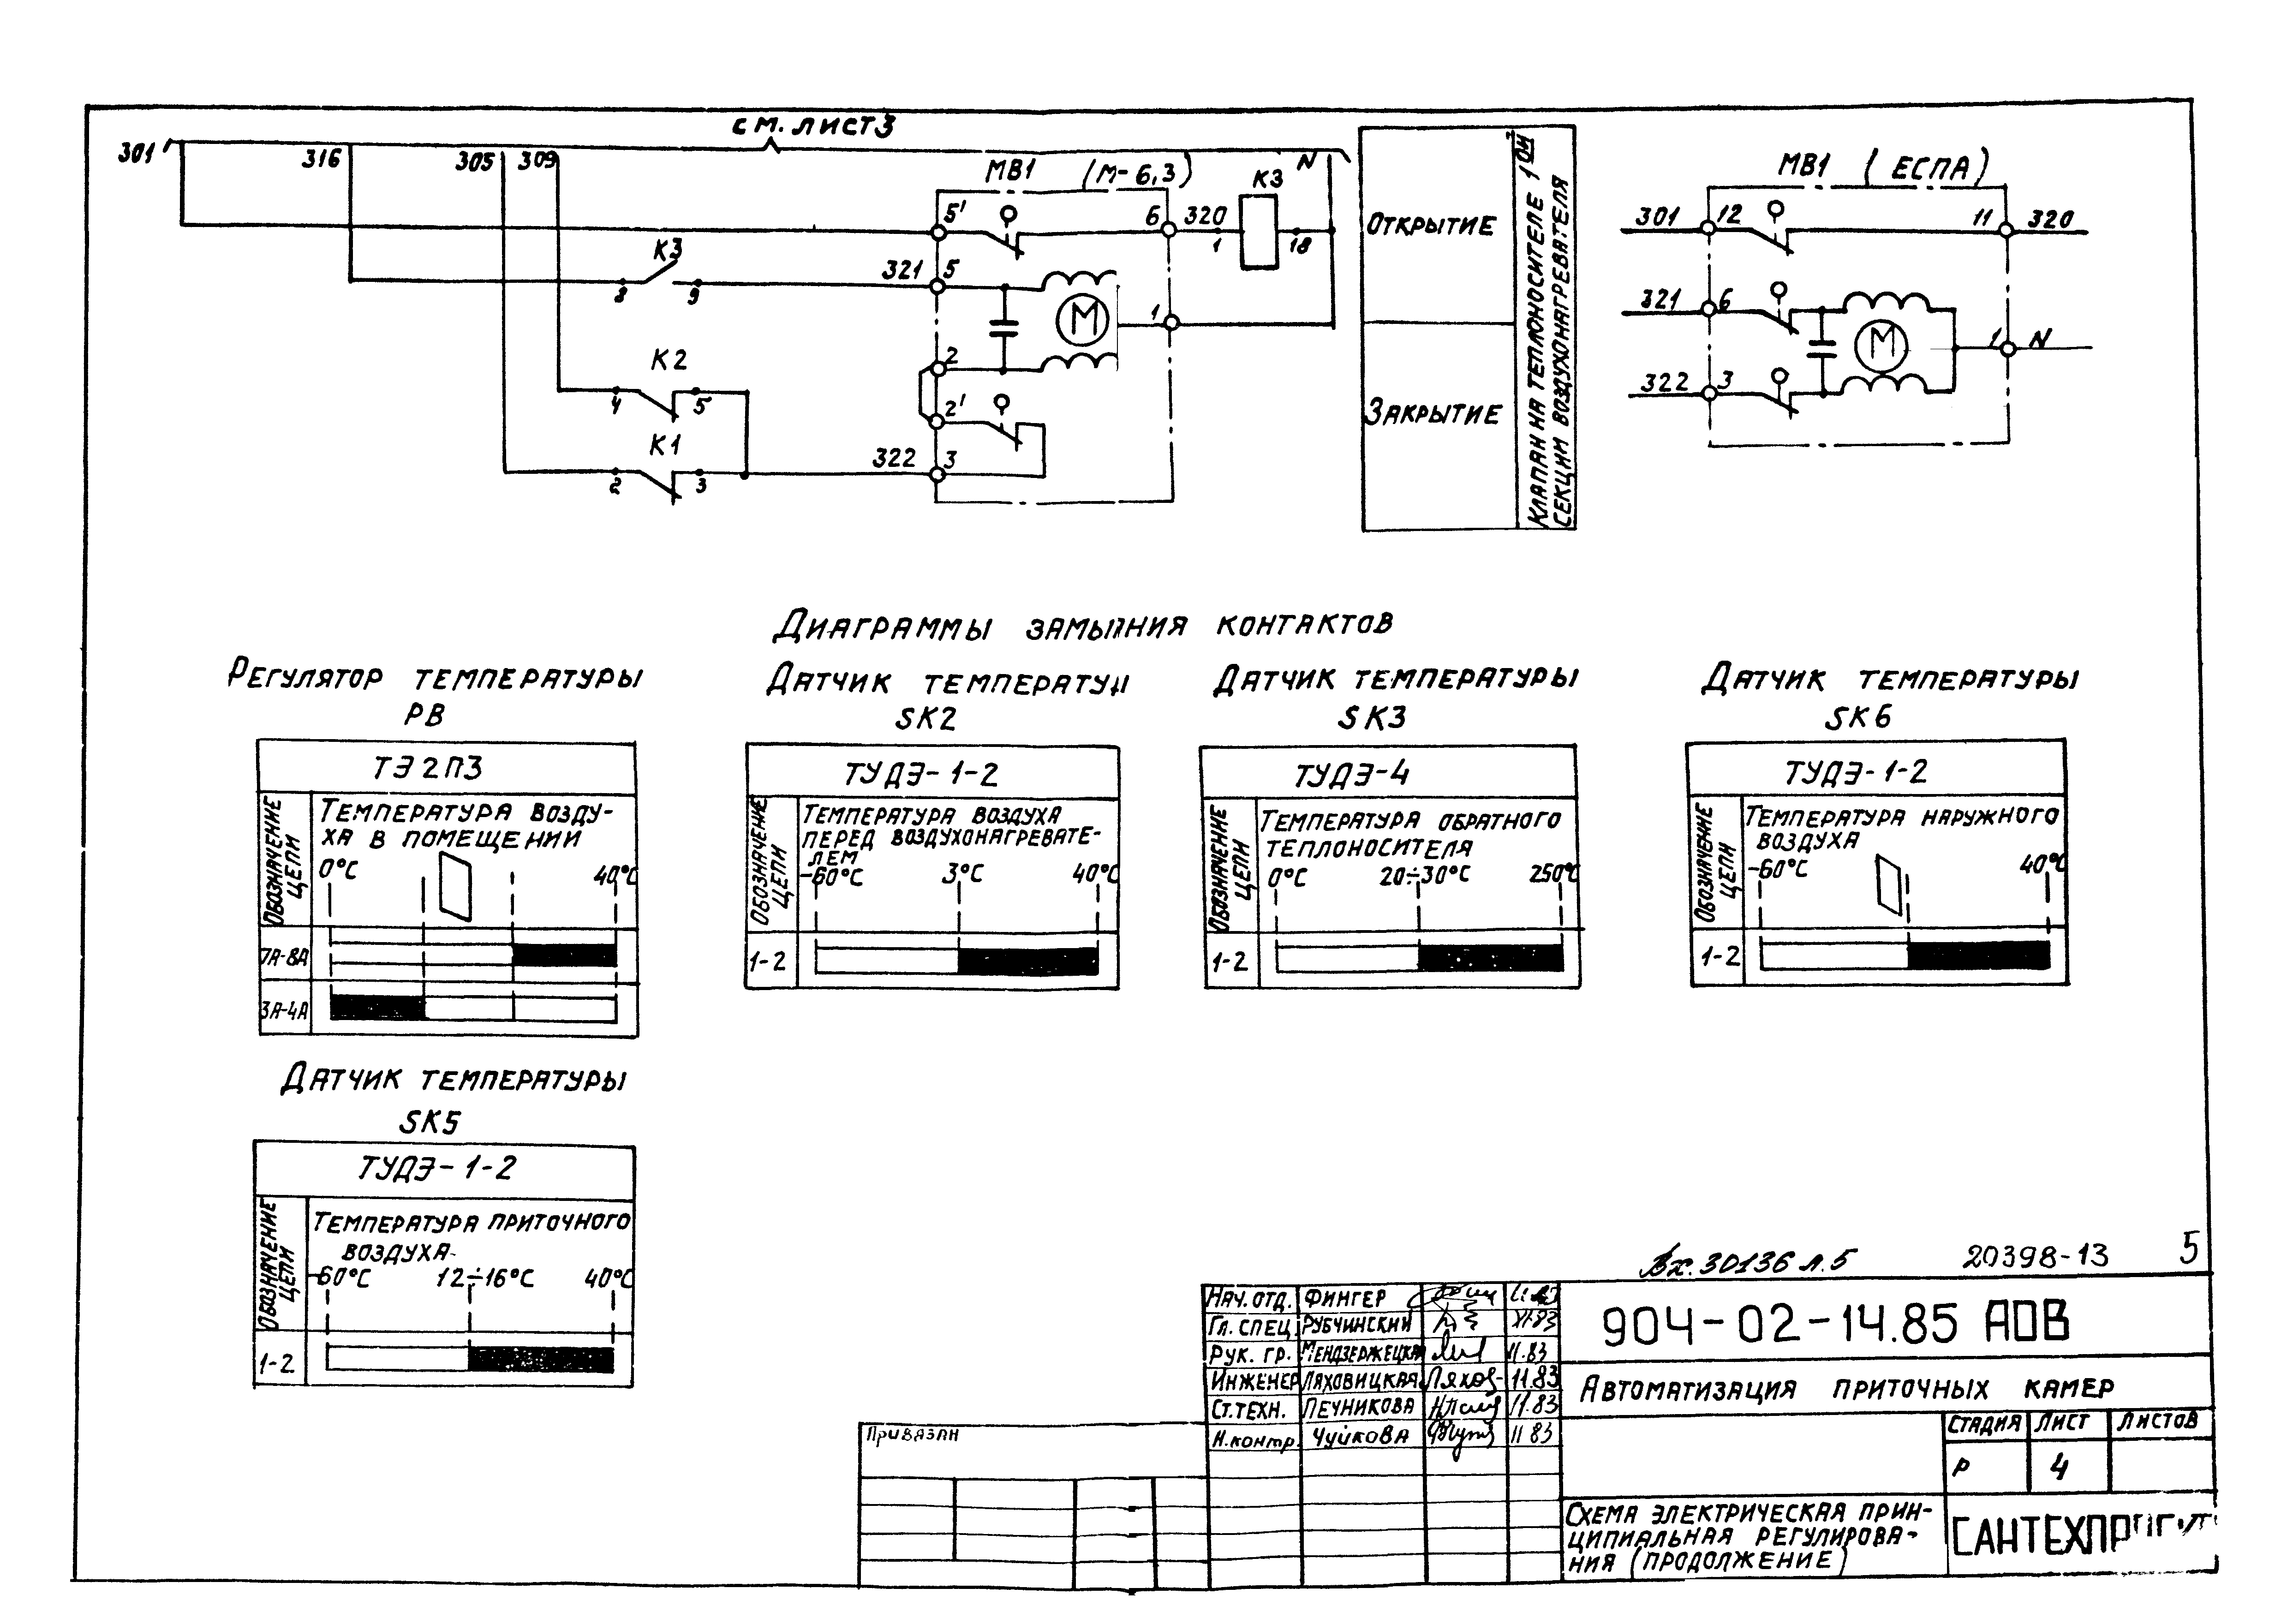 см. лист 3
301
316
305
309
N
МВ1 (М-6,3)
К3
5'
6
320
1
18
К3
8
9
321
5
1
К2
4
5
2
2'
К1
2
3
322
3
М
Открытие
Закрытие
Клапан на теплоносителе 1ой
секции воздухонагревателя
МВ1 (ЕСПА)
301
12
11
320
321
6
1
N
322
3
М
Диаграммы замыания контактов
Регулятор температуры
РВ
ТЭ2П3
Обозначение
цепи
Температура возду-
ха в помещении
0°С
40°С
7А-8А
3А-4А
Датчик температуы
SK2
ТУДЭ-1-2
Обозначение
цепи
Температура воздуха
перед воздухонагревате-
лем
-60°С
3°С
40°С
1-2
Датчик температуры
SK3
ТУДЭ-4
Обозначение
цепи
Температура обратного
теплоносителя
0°С
20÷30°С
250°С
1-2
Датчик температуры
SK6
ТУДЭ-1-2
Обозначение
цепи
Температура наружного
воздуха
-60°С
40°С
1-2
Датчик температуры
SK5
ТУДЭ-1-2
Обозначение
цепи
Температура приточного
воздуха
-60°С
12÷16°С
40°С
1-2
Вх. 30136 л.5
20398-13
5
Нач. отд. Фингер
Гл. спец. Рубчинский XI.83
Рук. гр. Мендзержецкая 11.83
Инженер Ляховицкая Ляхов 11.83
Ст. техн. Печникова 11.83
Н. контр. Чуйкова 11 83
904-02-14.85 АОВ
Автоматизация приточных камер
Стадия Лист Листов
Р 4
Схема электрическая прин-
ципиальная регулирова-
ния (продолжение)
Привязан